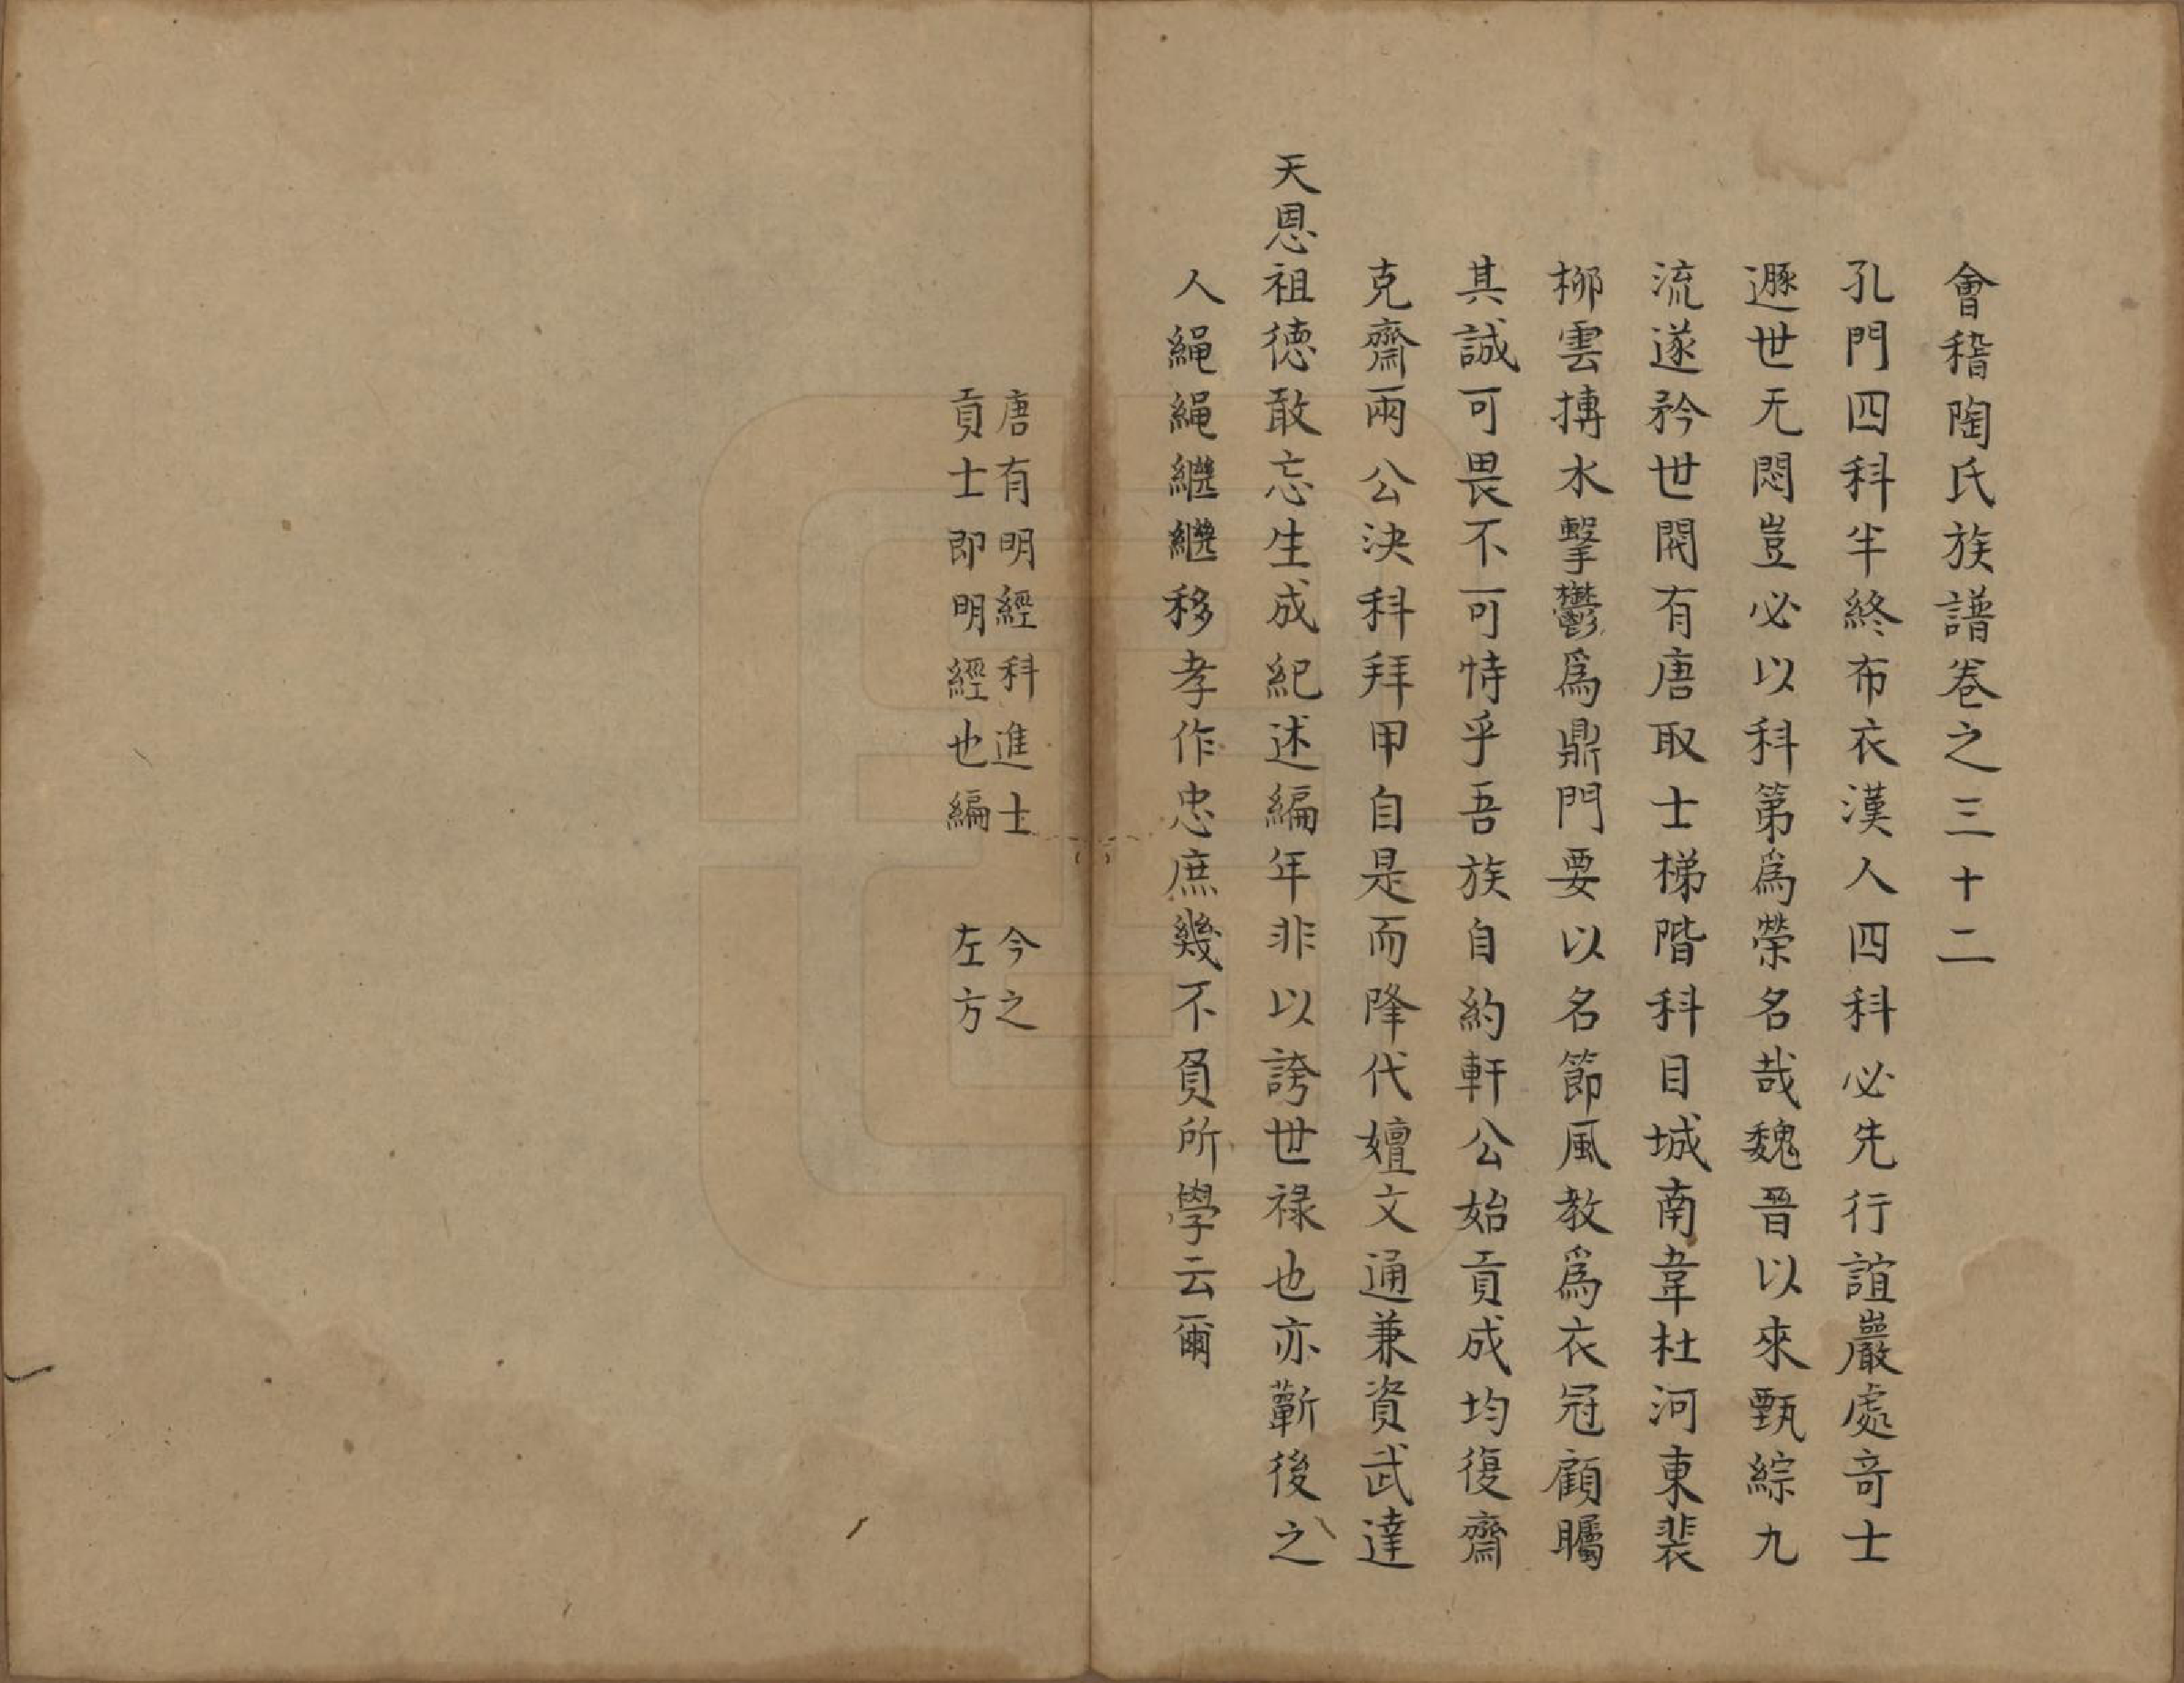 會稽陶氏族譜卷之三十二
孔門四科半終布衣漢人四科必先行誼巖處奇士
遯世无悶豈必以科第爲榮名哉魏晉以來甄綜九
流遂矜世閥有唐取士梯階科目城南韋杜河東裴
栁雲摶水擊鬱爲鼎門要以名節風教爲衣冠顧矚
其誠可畏不可恃乎吾族自約軒公始貢成均復齋
克齋兩公決科拜甲自是而降代嬗文通兼資武達
天恩祖德敢忘生成紀述編年非以誇世禄也亦蘄後之
人繩繩繼繼移孝作忠庶幾不負所學云爾
唐有明經科進士　今之
貢士即明經也編　左方